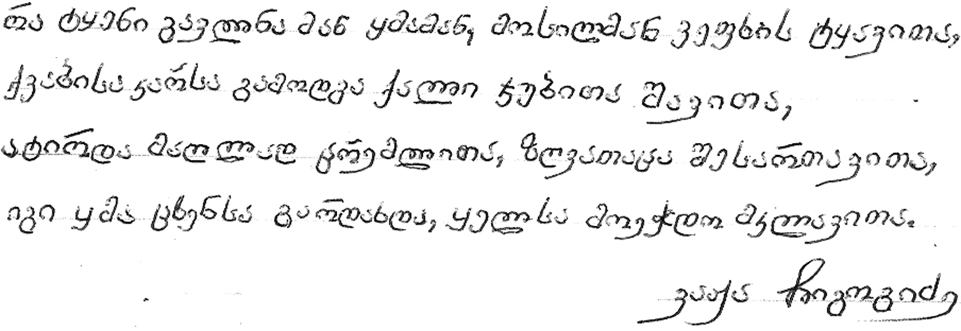 რა ტყენი გავლნა მან ყმამან, მოსილმან ვეფხის ტყავითა,
ქვაბისა კარსა გამოდგა ქალი ჯუბითა შავითა,
ატირდა მაღლად ცრემლითა, ზღვათაცა შესართავითა,
იგი ყმა ცხენსა გარდახდა, ყელსა მოეჭდო მკლავითა.
ვაჟა ჩიგოგიძე